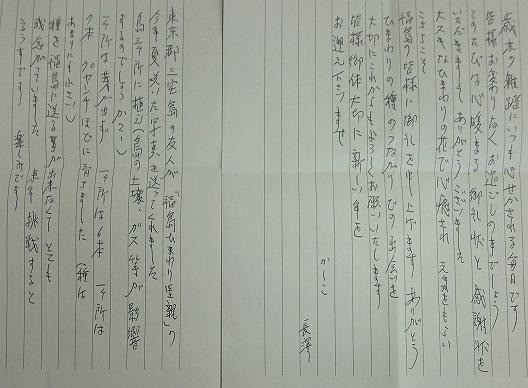 歳末の雑踏にいつも心せかされる毎日です
皆様お変わりなくお過ごしの事でしょう
このたびは心暖まる御礼状と感謝状を
いただきまして ありがとうございました
大スキなひまわりの花で心癒され 元気をもらい
こちらこそ
福島の皆様に御礼を申し上げます ありがとう
ひまわりの種のつながりでの出会いを
大切にこれからもよろしくお願いいたします
皆様御体大切に 新しい年を
お迎え下さいませ
かしこ
長澤
東京都三宅島の友人が「福島ひまわり里親」の
今年夏咲いた写真を送ってくれました
島三ヶ所に植え(島の土壌、ガス等が影響
するのでしょうか)
一ヶ所は芽が出ず 一ヶ所は6本 一ヶ所は
7本 センチほどに育ちました(種は
あまりにも小さい)
種を福島に送る事が出来なくて とても
残念がっていました 来年挑戦すると
そうです 楽しみです